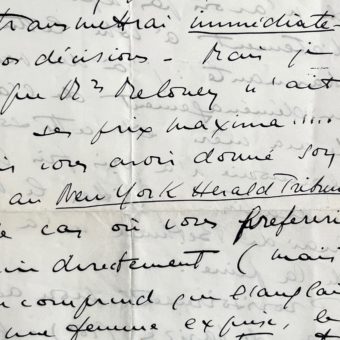 transmettrai immédiate-
os décisions - Mais je
que Mrs Meloney n'ait
ses prix maxima.....
is vous avoir donné son
au New York Herald Tribun
e cas où vous préféreri
directement (mais
comprend que l'anglai
une femme exquise, la